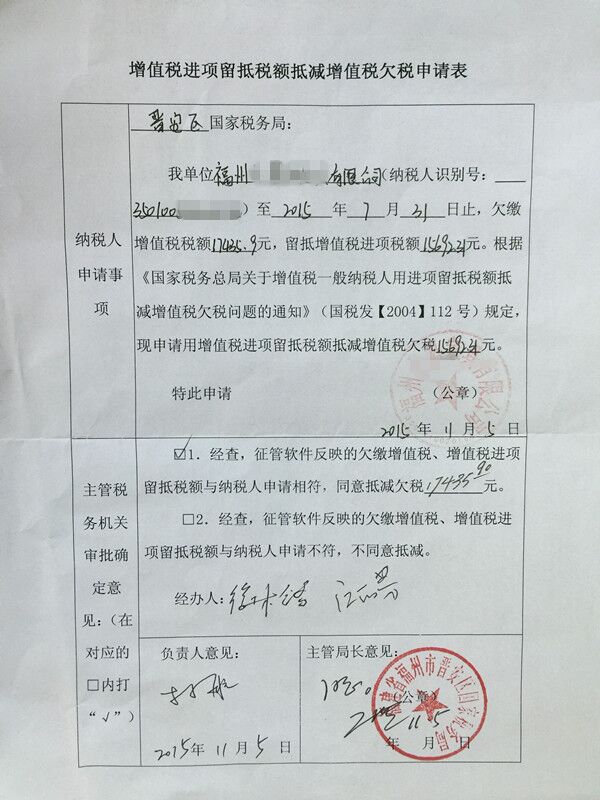 增值税进项留抵税额抵减增值税欠税申请表
纳税人
申请事
项
晋安区国家税务局：
我单位福州 有限公司(纳税人识别号：
350100 ）至 2015 年 7 月 31 日止，欠缴
增值税税额17435.9元，留抵增值税进项税额156921.21元。根据
《国家税务总局关于增值税一般纳税人用进项留抵税额抵
减增值税欠税问题的通知》（国税发【2004】112 号）规定，
现申请用增值税进项留抵税额抵减增值税欠税元。
特此申请
（公章）
2015 年 11 月 5 日
主管税
务机关
审批确
定意
见：（在
对应的
□内打
“√”）
☑1．经查，征管软件反映的欠缴增值税、增值税进项
留抵税额与纳税人申请相符，同意抵减欠税17435.90元。
□2．经查，征管软件反映的欠缴增值税、增值税进
项留抵税额与纳税人申请不符，不同意抵减。
经办人：
负责人意见：
2015年 11 月 5 日
主管局长意见：
（公章）
2015 11 5
年 月 日
福建省福州市晋安区国家税务局